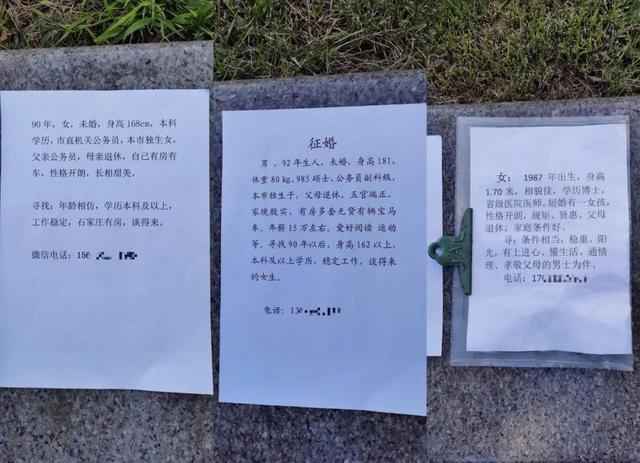 90年，女，未婚，身高168cm，本科
学历，市直机关公务员，本市独生女，
父亲公务员，母亲退休，自己有房有
车，性格开朗，长相甜美。
寻找：年龄相仿，学历本科及以上，
工作稳定，石家庄有房，谈得来。
微信电话：156
征婚
男，92年生人，未婚，身高181，
体重80kg，985硕士，公务员副科级，
本市独生子，父母退休，五官端正，
家境殷实，有房多套无贷有辆宝马
车。年薪15万左右。爱好阅读 运动
等。寻找90年以后，身高162以上，
本科及以上学历，稳定工作，谈得来
的女生。
电话：13
女： 1987 年出生，身高
1.70 米，相貌佳，学历博士，
省级医院医师。短婚有一女孩，
性格开朗、规矩、贤惠。父母
退休；家庭条件好。
寻：条件相当，稳重、阳
光，有上进心、懂生活、通情
理、孝敬父母的男士为伴。
电话：17